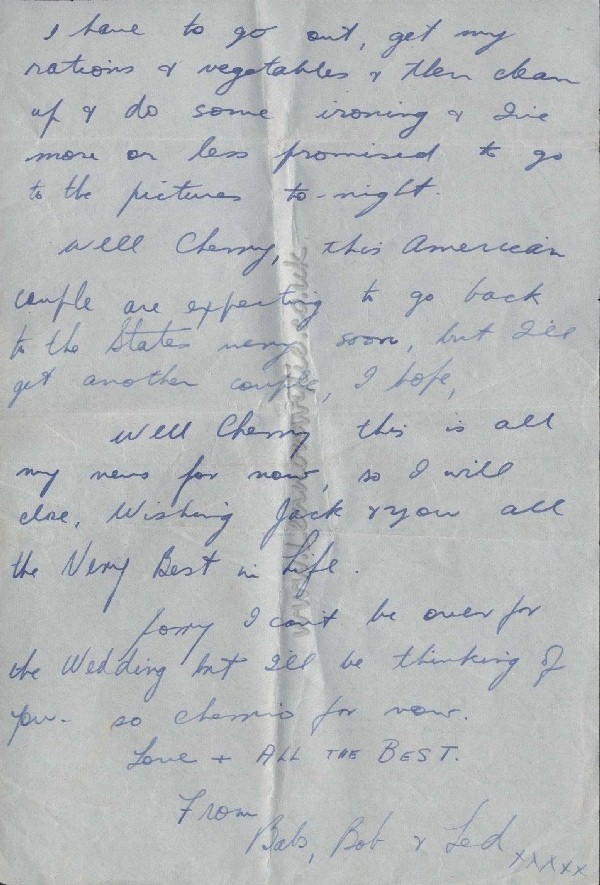 I have to go out, get my
rations & vegetables & then clean
up & do some ironing & I've
more or less promised to go
to the pictures to-night.
Well Cherry, this American
couple are expecting to go back
to the States very soon, but I'll
get another couple, I hope,
Well Cherry this is all
my news for now, so I will
close, Wishing Jack & you all
the Very Best in Life.
Sorry I can't be over for
the Wedding but I'll be thinking of
you. so cheerio for now.
Love + ALL THE BEST.
From
Babs, Bob & Ted
xxxxx